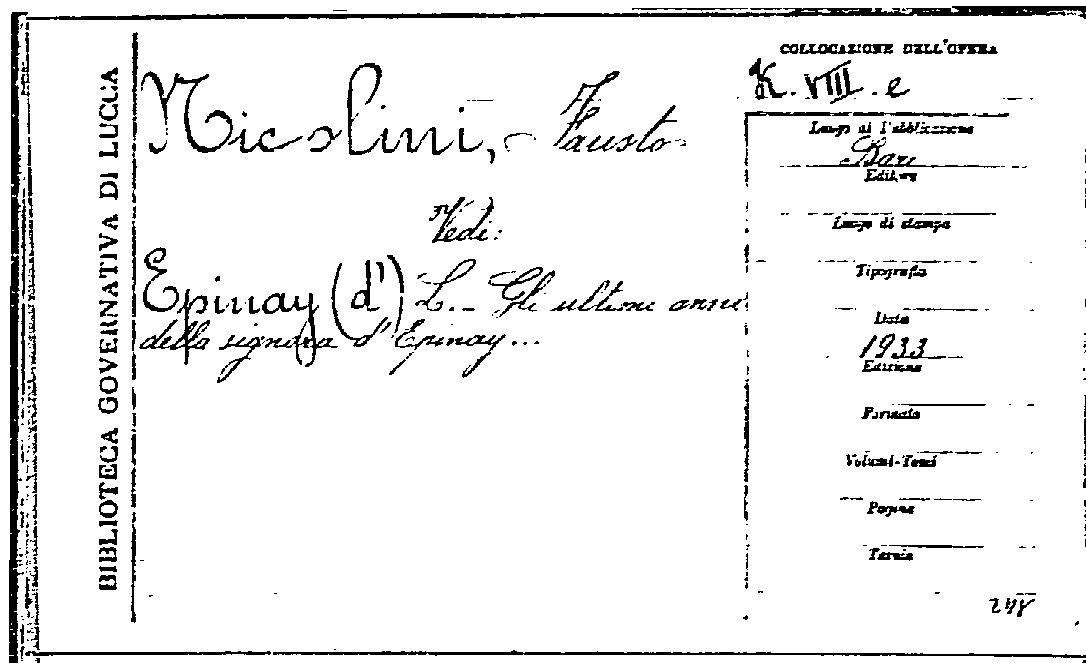 BIBLIOTECA GOVERNATIVA DI LUCCA
Nicolini, - Fausto
Vedi:
Epinay (d') L. - Gli ultimi anni
della signora d'Epinay...
COLLOCAZIONE DELL'OPERA
K. VIII. e
Luogo di Pubblicazione
Bari
Editore
Luogo di stampa
Tipografia
Data
1933
Edizione
Formato
Volumi-Tomi
Pagine
Tavole
248